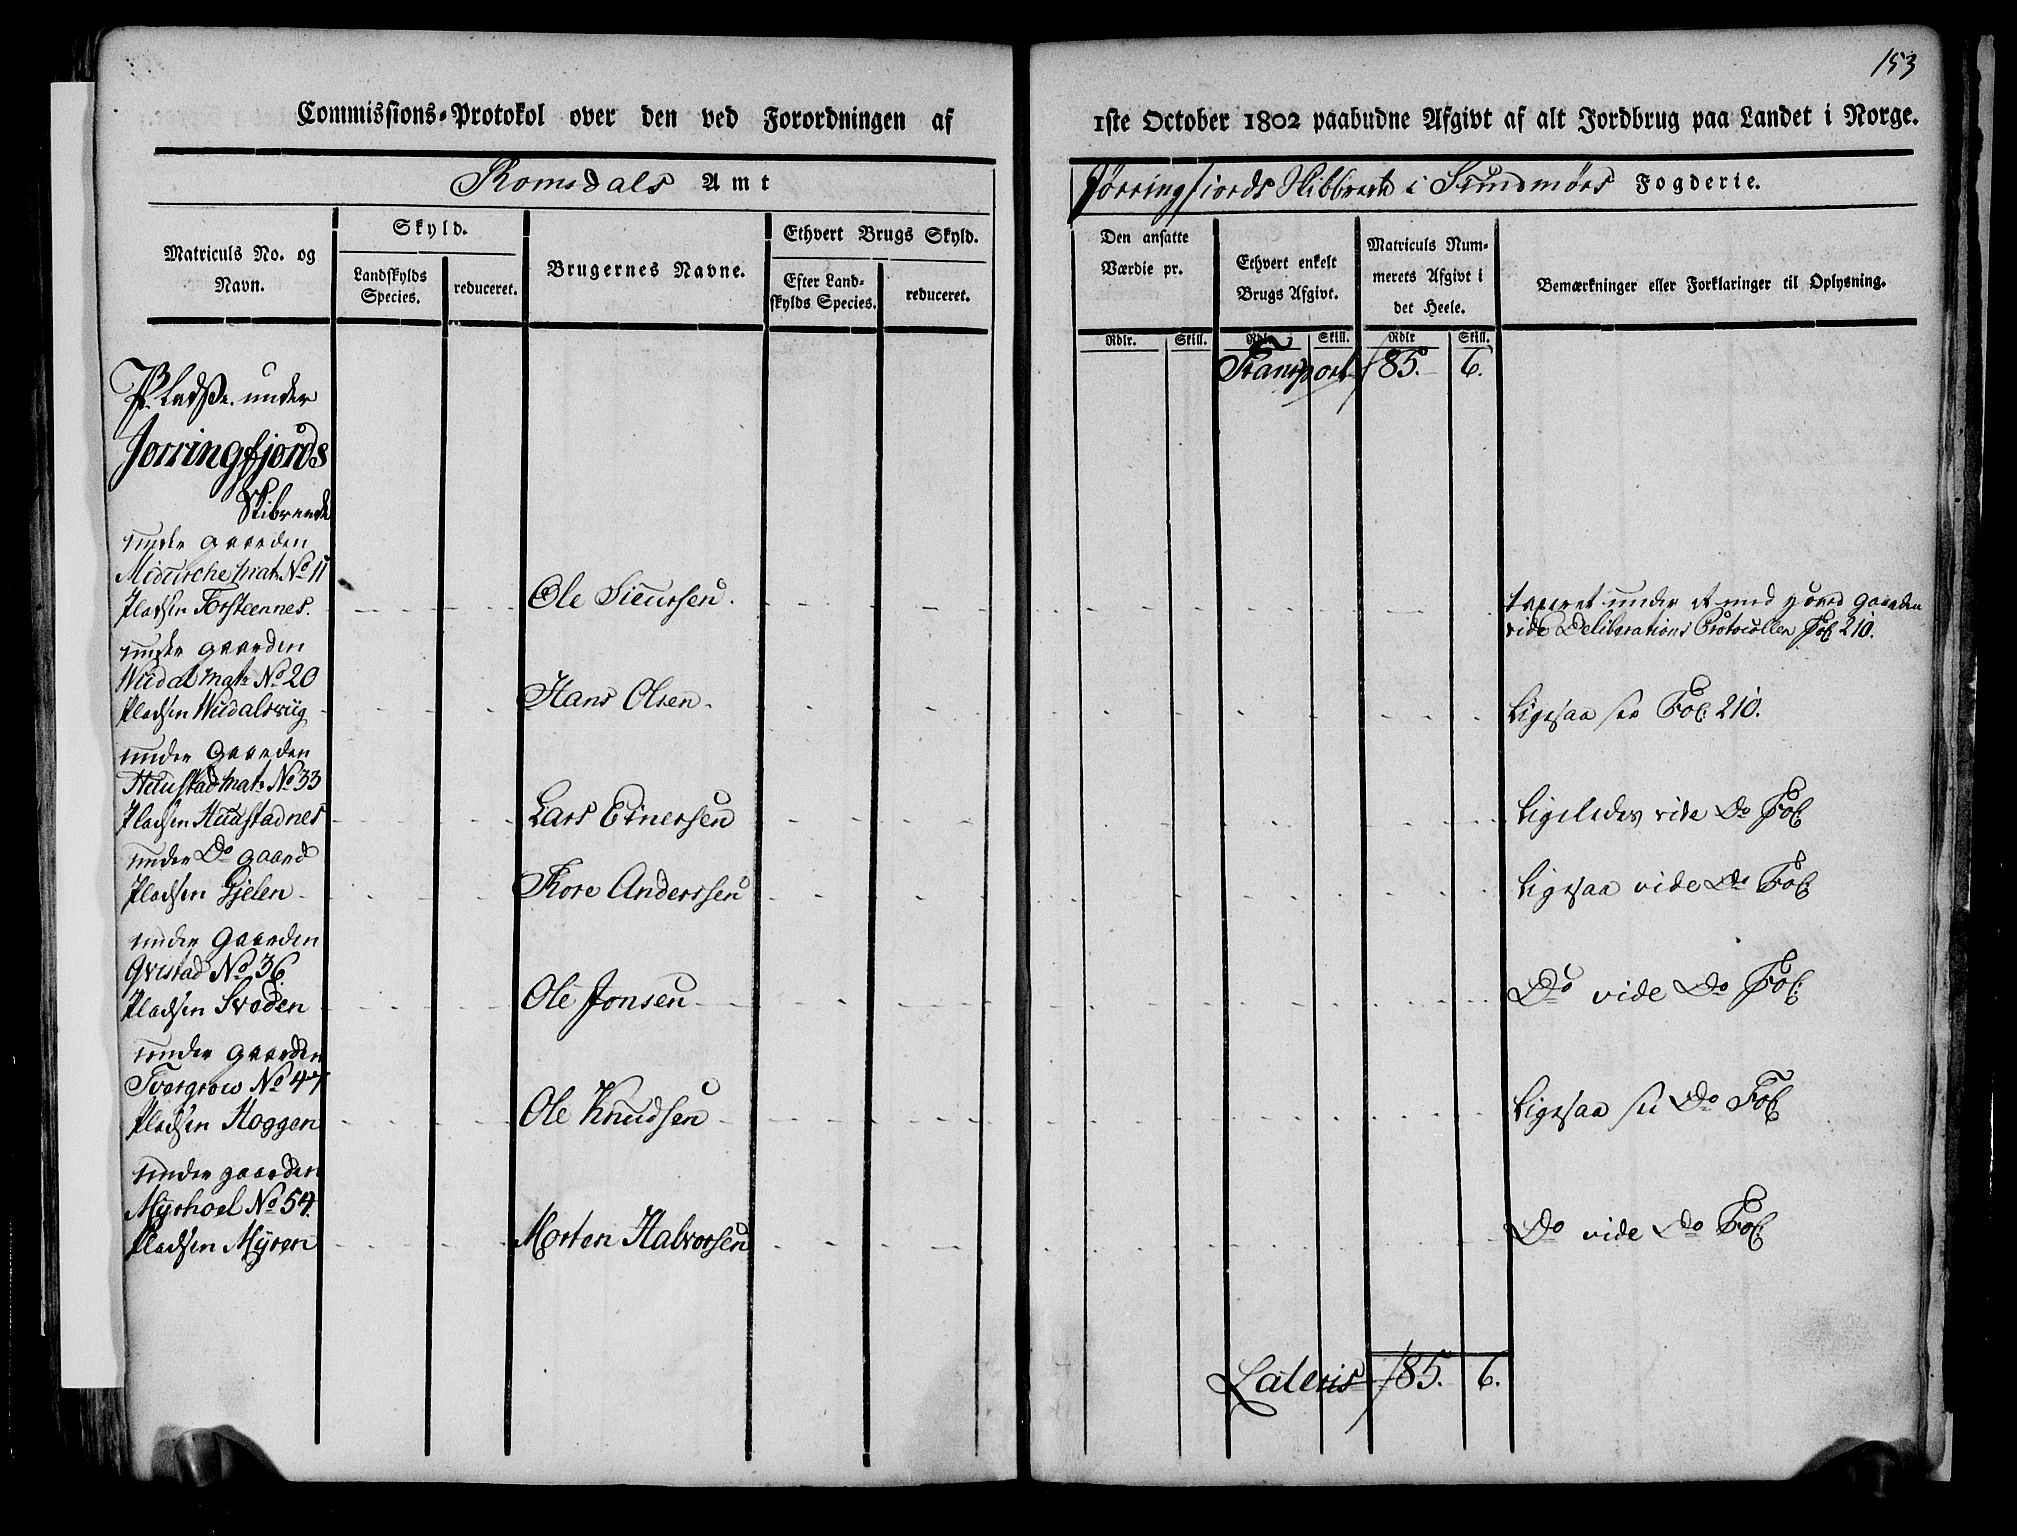 153
Commissions-Protokol over den ved Forordningen af 1ste October 1802 paabudne Afgivt af alt Jordbrug paa Landet i Norge.
Romsdals Amt
Jørringfjords Skibbrede i Sundmørs Fogderie.
Matriculs No. og Navn.
Skyld.
Landskylds Species.
reduceret.
Brugernes Navne.
Ethvert Brugs Skyld.
Efter Landskylds Species.
reduceret.
Den ansatte Værdie pr.
Ethvert enkelt Brugs Afgivt.
Matriculs Nummerets Afgivt i det Heele.
Bemærkninger eller Forklaringer til Oplysning.
Rdlr. Skill. Rdlr. Skill. Rdlr Skill.
Transport 185. 6.
Pladse under
Jørringfjords
Skibrende
under gaarden
Midtirche mat. No 11
Pladsen Torsteennes. Ole Sieursen. taxeret under et med hoved gaarden
vide Deliberations Protocollen Fol 210.
under gaarden
Wudal mat: No 20
Pladsen Wudalsviig Hans Olsen. Ligesaa see Fol: 210.
under gaarden
Haustad mat: No 33
Pladsen Haustadnes Lars Einersen Ligeledes vide Do Fol:
under Do gaard
Pladsen Gjelen Thore Anderssen Ligesaa vide Do Fol:
under gaarden
Qvistad No 36
Pladsen Svaden Ole Jonsen Do vide Do Fol:
under gaarden
Tvergrow No 47
Pladsen Hoggen Ole Knudsen Ligesaa see Do Fol:
under gaarden
Myrhoel No 54.
Pladsen Myren Morten Halvorsen Do vide Do Fol:
Lateris 185. 6.